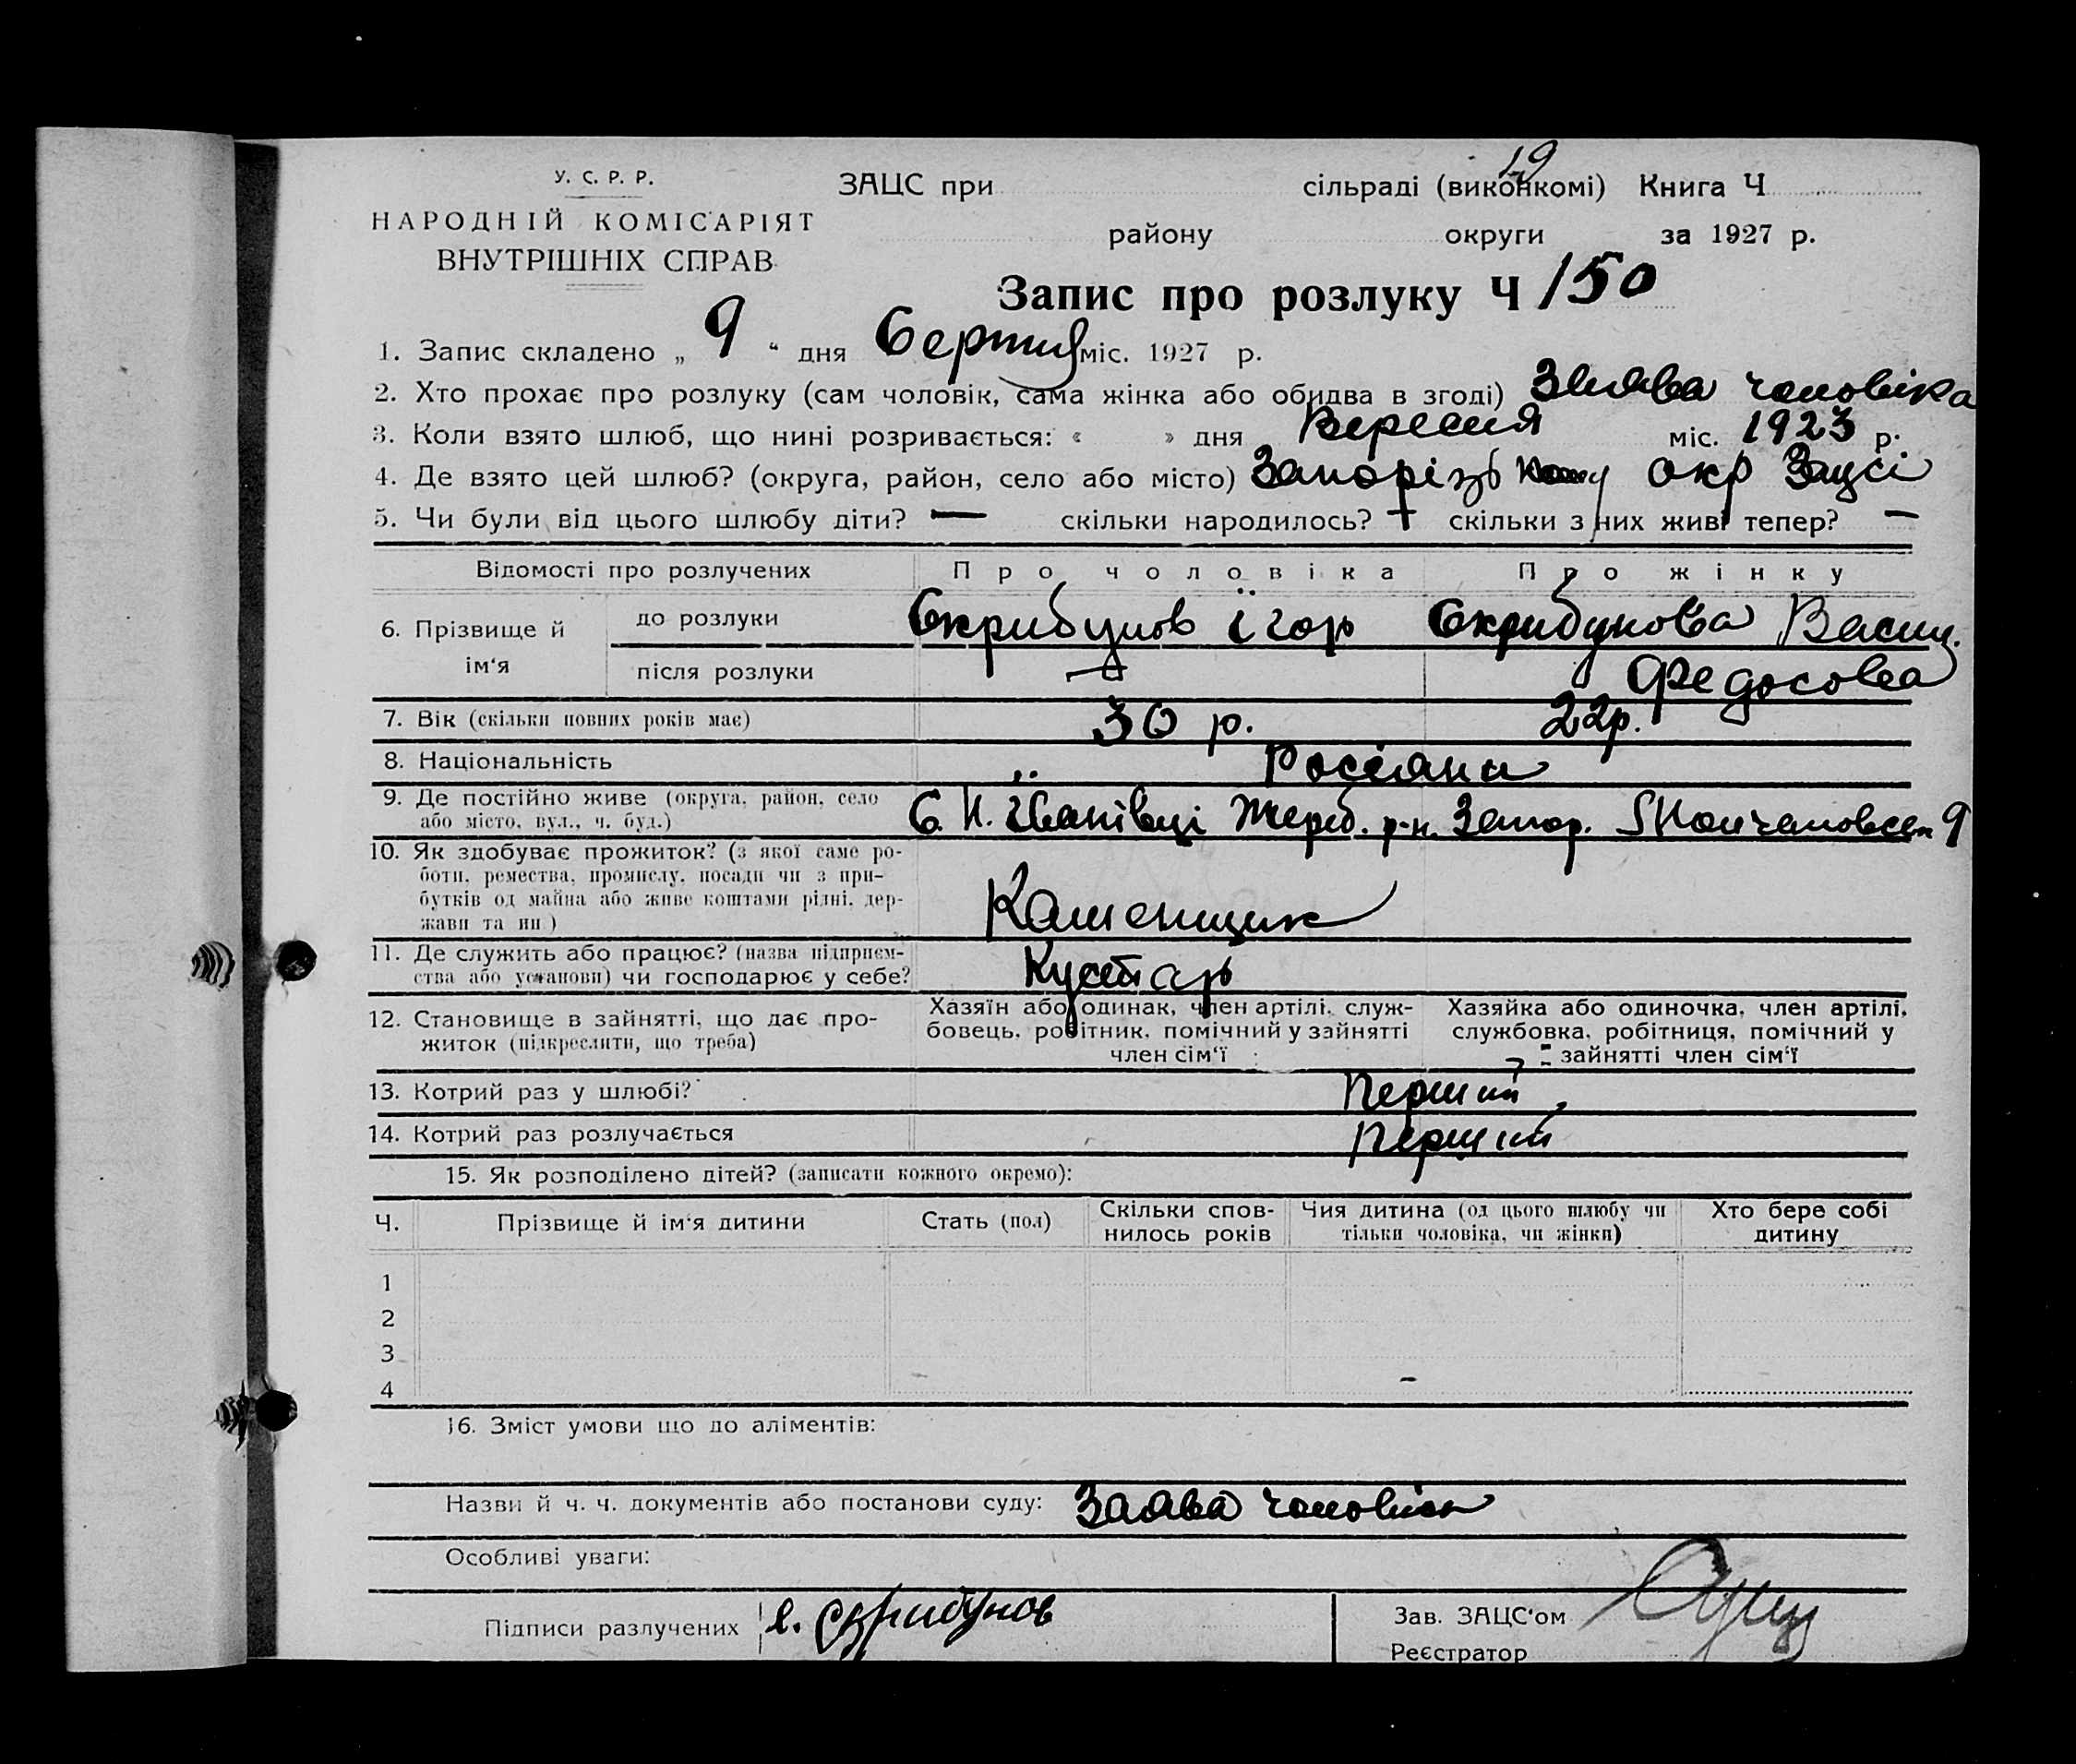 19
У. С. Р. Р.
НАРОДНІЙ КОМІСАРІЯТ
ВНУТРІШНІХ СПРАВ
ЗАЦС при сільраді (виконкомі) Книга Ч
району округи за 1927 р.
Запис про розлуку Ч 150
1. Запис складено „ 9 “ дня Серпня міс. 1927 р.
2. Хто прохає про розлуку (сам чоловік, сама жінка або обидва в згоді) Заява чоловіка
3. Коли взято шлюб, що нині розривається: « » дня Вересня міс. 1923 р.
4. Де взято цей шлюб? (округа, район, село або місто) Запорізькому окр Зацсі
5. Чи були від цього шлюбу діти? — скільки народилось? + скільки з них живі тепер? —
Відомості про розлучених Про чоловіка Про жінку
6. Прізвище й ім‘я до розлуки Скрибунов Ігор Скрибунова Васил.
після розлуки Федосова
7. Вік (скільки повних років має) 30 р. 22р.
8. Національність Росіяни
9. Де постійно живе (округа, район, село
або місто, вул., ч. буд.) С. Н. Іванівці Жереб. р-н. Запор. 9
10. Як здобуває прожиток? (з якої саме ро-
боти, ремества, промислу, посади чи з при-
бутків од майна або живе коштами рідні, дер-
жави та ин.) Каменщик
11. Де служить або працює? (назва підприєм-
ства або установи) чи господарює у себе? Кустарь
12. Становище в зайнятті, що дає про-
житок (підкреслити, що треба)
Хазяїн або одинак, член артілі, служ-
бовець, робітник, помічний у зайнятті
член сім‘ї
Хазяйка або одиночка, член артілі,
службовка, робітниця, помічний у
зайнятті член сім‘ї
13. Котрий раз у шлюбі? Перший
14. Котрий раз розлучається Перший
15. Як розподілено дітей? (записати кожного окремо):
Ч. Прізвище й ім‘я дитини Стать (пол) Скільки спов-
нилось років Чия дитина (од цього шлюбу чи
тільки чоловіка, чи жінки) Хто бере собі
дитину
1
2
3
4
16. Зміст умови що до аліментів:
Назви й ч. ч. документів або постанови суду: Заява чоловіка
Особливі уваги:
Підписи разлучених Скрибунов
Зав. ЗАЦС‘ом
Реєстратор